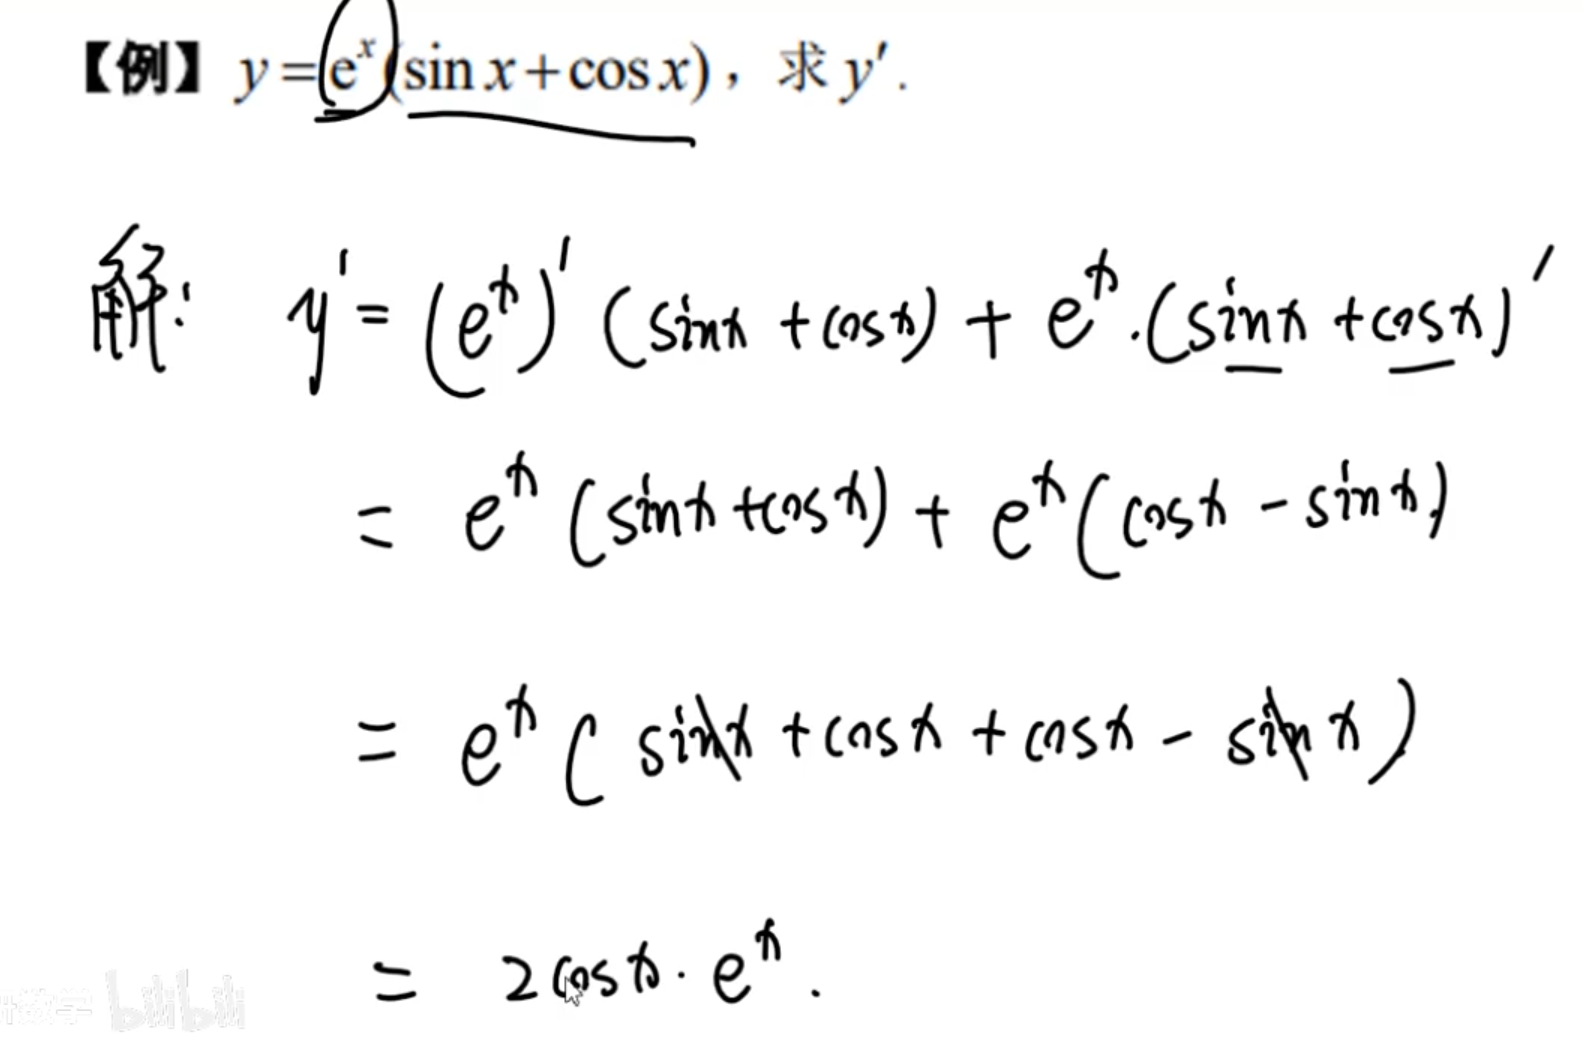 【例】 y=eˣ(sin x+cos x)，求 y′.
解: y' = (eˣ)' (sinx + cosx) + eˣ·(sinx + cosx)'
= eˣ (sinx + cosx) + eˣ (cosx - sinx)
= eˣ ( sinx + cosx + cosx - sinx )
= 2cosx · eˣ .
数学 bilibili